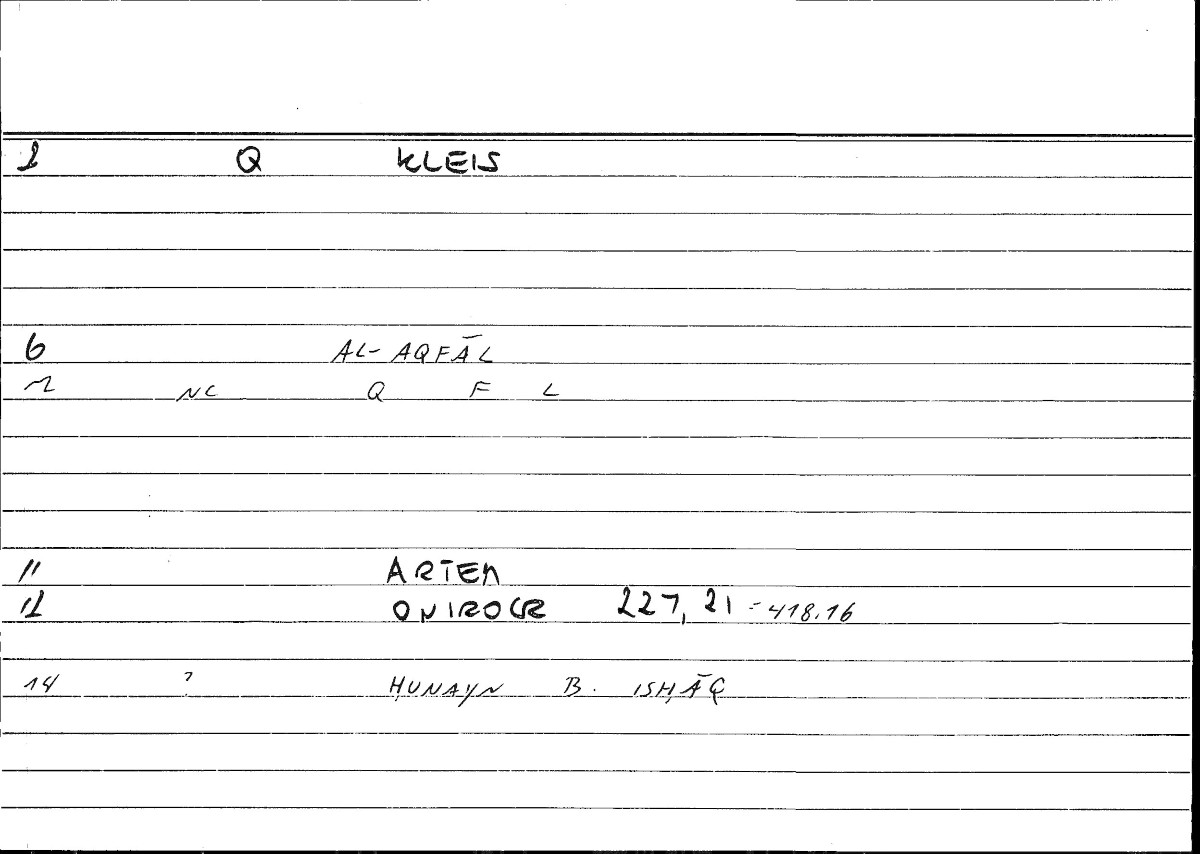 1 Q KLEIS
6 AL-AQFĀL
NC Q F L
11 ARTEM
12 ONIROCR 227, 21 = 418.16
14 ? ḤUNAYN B. ISḤĀQ